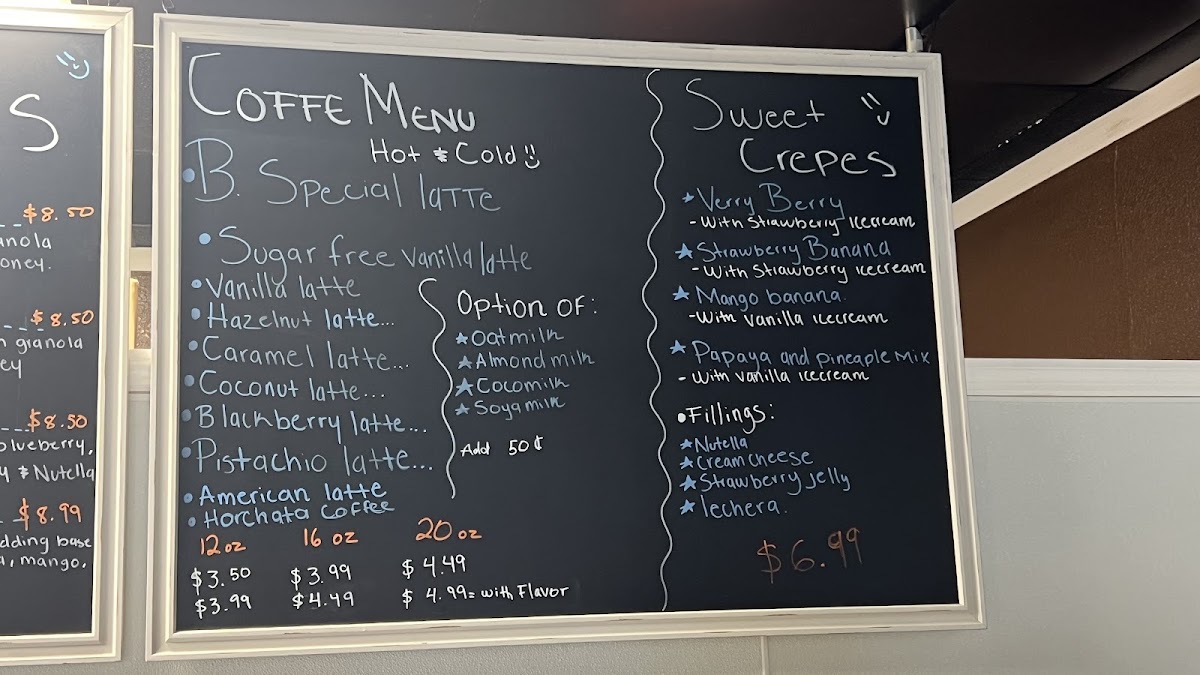 S
$8.50
oney.
$8.50
granola
$8.50
blueberry,
& Nutella
$8.99
base
mango.
Coffe Menu
Hot & Cold
• B. Special latte
• Sugar free vanilla latte
• Vanilla latte
• Hazelnut latte...
• Caramel latte...
• Coconut latte...
• Blackberry latte...
• Pistachio latte...
• American latte
• Horchata Coffee
Option of:
★ Oatmilk
★ Almond milk
★ Cocomilk
★ Soya milk
Add 50¢
12 oz 16 oz 20 oz
$3.50 $3.99 $4.49
$3.99 $4.49 $4.99 = with Flavor
Sweet
Crepes
★ Verry Berry
- With Strawberry Icecream
★ Strawberry Banana
- With Strawberry icecream
★ Mango banana.
- With vanilla icecream
★ Papaya and pineaple Mix
- With vanilla icecream
• Fillings:
★ Nutella
★ Cream cheese
★ Strawberry jelly
★ lechera.
$6.99